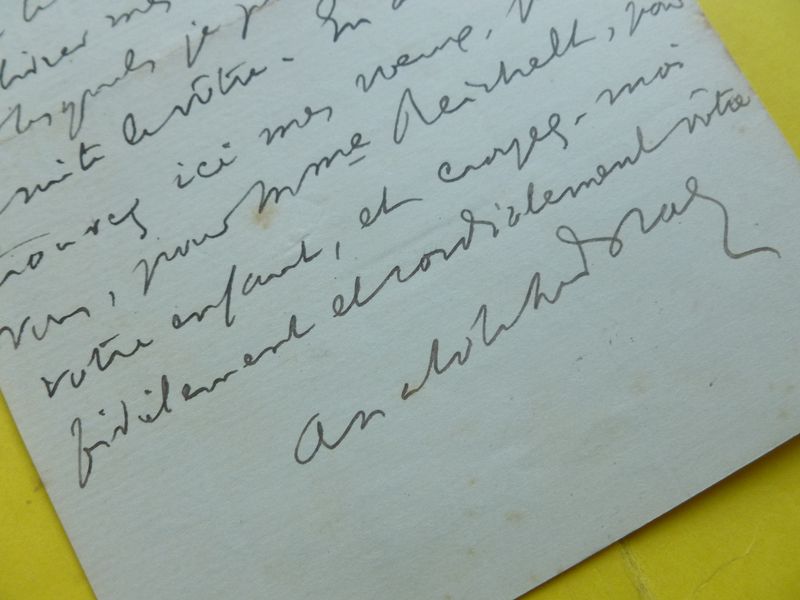 mes
lesquels je
vôtre. En
trouvez ici mes vœux,
vous, pour Mme Reichelt, pour
votre enfant, et croyez-moi
fidèlement et cordialement vôtre
Anatole Le Braz